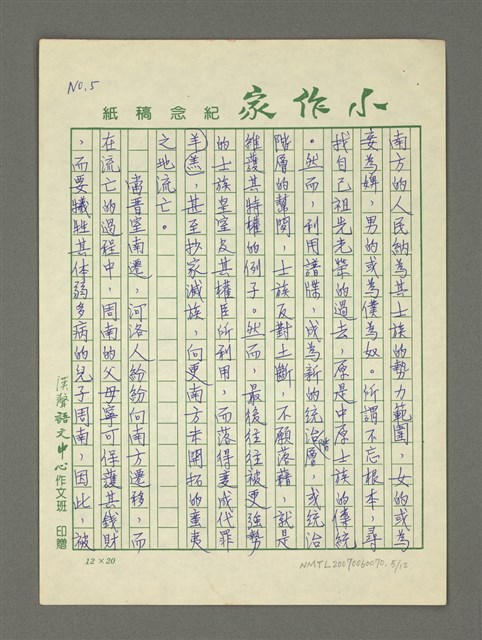 No. 5
小作家 紀念稿紙
南方的人民納為其士族的勢力範圍，女的或為
妾為婢，男的或為僕為奴。所謂不忘根本，尋
找自己祖先光榮的過去，原是中原士族的傳統
。然而，利用譜牒，成為新的統治階層，或統治
階層的幫閒，士族反對土斷，不願落籍，就是
維護其特權的例子。然而，最後往往被更強勢
的士族皇室及其權臣所利用，而落得變成代罪
羊羔，甚至抄家滅族，向更南方未開拓的蠻夷
之地流亡。
當晉室南遷，河洛人紛紛向南方遷移，而
在流亡的過程中，周南的父母寧可保護其錢財
，而要犧牲其体弱多病的兒子周南，因此，被
漢聲語文中心作文班 印贈
12×20
NMTL20070060070. 5/12